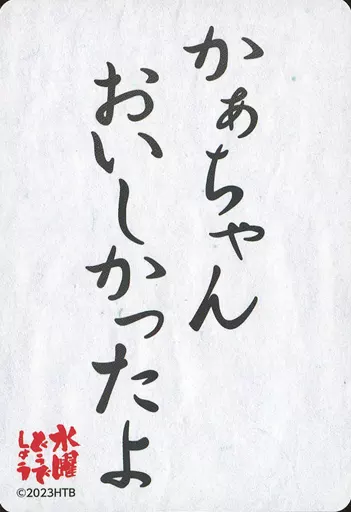 かぁちゃん
おいしかったよ
水曜
どうで
しょう
©2023HTB